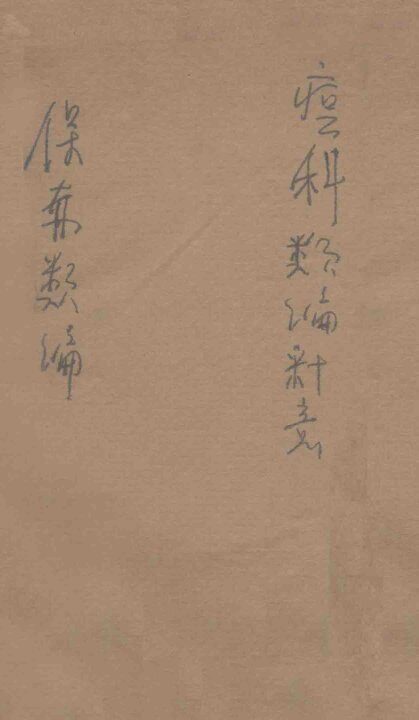 痘科類編釋意
保赤類編